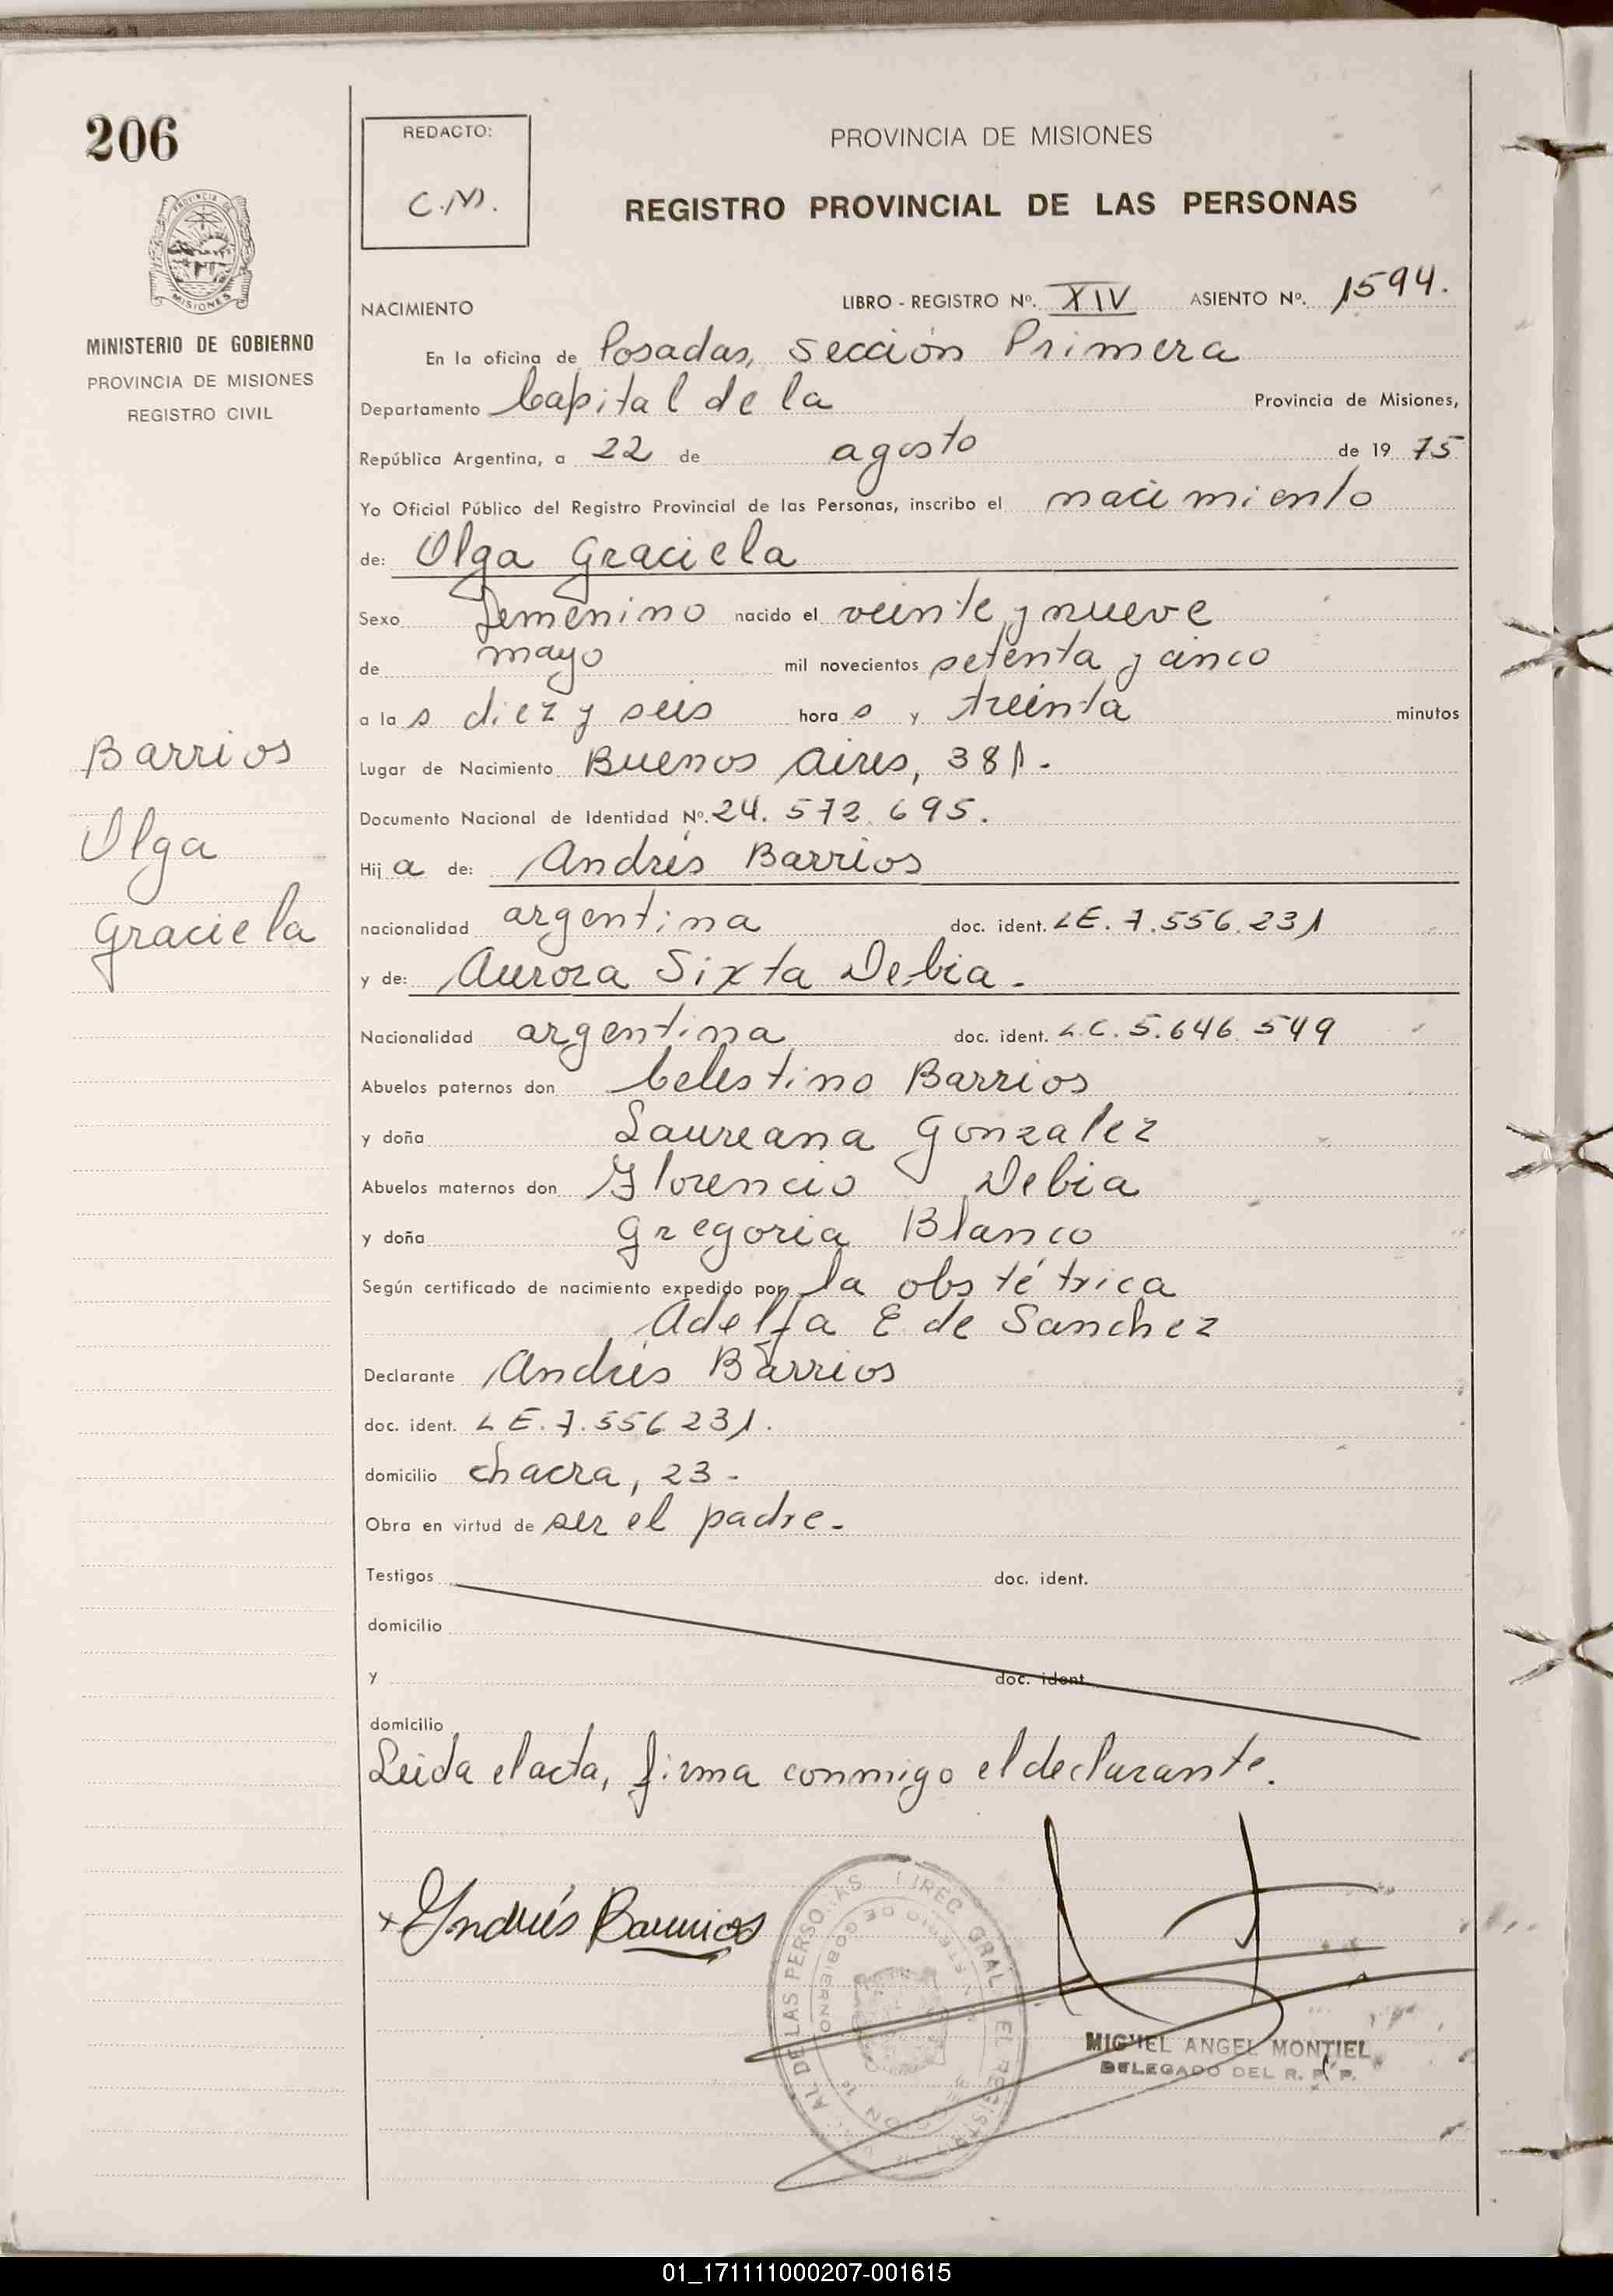 206
REDACTO:
C.M.
PROVINCIA DE MISIONES
REGISTRO PROVINCIAL DE LAS PERSONAS
MISIONES
MINISTERIO DE GOBIERNO
PROVINCIA DE MISIONES
REGISTRO CIVIL
NACIMIENTO LIBRO - REGISTRO Nº. XIV ASIENTO Nº. 1594.
En la oficina de Posadas, Sección Primera
Departamento Capital de la Provincia de Misiones,
República Argentina, a 22 de agosto de 19 75
Yo Oficial Público del Registro Provincial de las Personas, inscribo el nacimiento
de: Olga Graciela
Sexo femenino nacido el veinte y nueve
de mayo mil novecientos setenta y cinco
a la s diez y seis hora s y treinta minutos
Lugar de Nacimiento Buenos Aires, 381.
Documento Nacional de Identidad Nº. 24.572.695.
Hij a de: Andrés Barrios
nacionalidad argentina doc. ident. LE. 7.556.231
y de: Aurora Sixta Debia.
Nacionalidad argentina doc. ident. L.C. 5.646.549
Abuelos paternos don Celestino Barrios
y doña Laureana Gonzalez
Abuelos maternos don Florencio Debia
y doña Gregoria Blanco
Según certificado de nacimiento expedido por la obstétrica
Adelfa E de Sanchez
Declarante Andrés Barrios
doc. ident. L E. 7.556 231.
domicilio chacra, 23-
Obra en virtud de ser el padre.
Testigos doc. ident.
domicilio
y doc. ident.
domicilio
Leida el acta, firma conmigo el declarante.
Barrios
Olga
Graciela
x Andrés Barrios
MIGUEL ANGEL MONTIEL
DELEGADO DEL R. P. P.
01_171111000207-001615